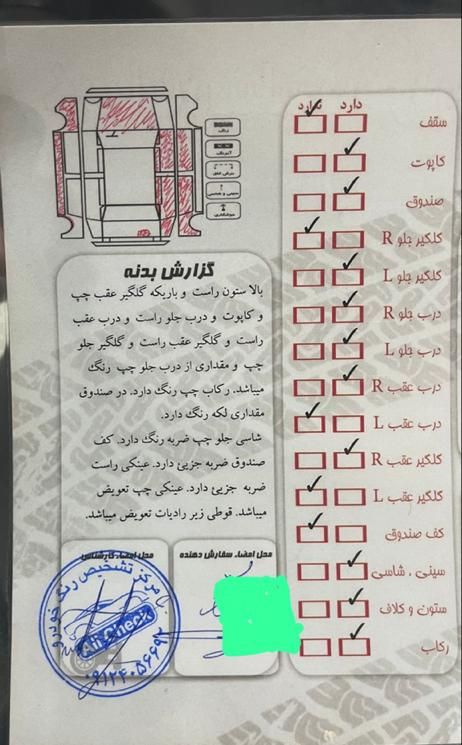 دارد
ندارد
سقف
کاپوت
صندوق
گلگیر جلو R
گلگیر جلو L
درب جلو R
درب جلو L
درب عقب R
درب عقب L
گلگیر عقب R
گلگیر عقب L
کف صندوق
سینی ، شاسی
ستون و کلاف
رکاب
رنگ
گزارش بدنه
بالا ستون راست و باریکه گلگیر عقب چپ
و کاپوت و درب جلو راست و درب عقب
راست و گلگیر عقب راست و گلگیر جلو
چپ و مقداری از درب جلو چپ رنگ
میباشد. رکاب چپ رنگ دارد. در صندوق
مقداری لکه رنگ دارد.
شاسی جلو چپ ضربه رنگ دارد. کف
صندوق ضربه جزیئ دارد. عینکی راست
ضربه جزیئ دارد. عینکی چپ تعویض
میباشد. قوطی زیر رادیات تعویض میباشد.
محل امضاء سفارش دهنده
محل امضاء کارشناس
مرکز تشخیص رنگ خودرو
Ali Check